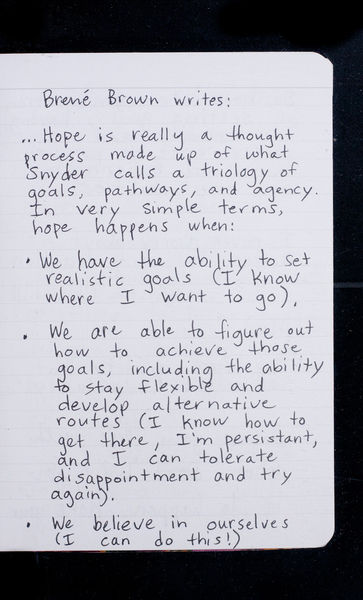 Brené Brown writes:
... Hope is really a thought
process made up of what
Snyder calls a triology of
goals, pathways, and agency.
In very simple terms,
hope happens when:
• We have the ability to set
realistic goals (I know
where I want to go).
• We are able to figure out
how to achieve those
goals, including the ability
to stay flexible and
develop alternative
routes (I know how to
get there, I'm persistant,
and I can tolerate
disappointment and try
again).
• We believe in ourselves
(I can do this!)